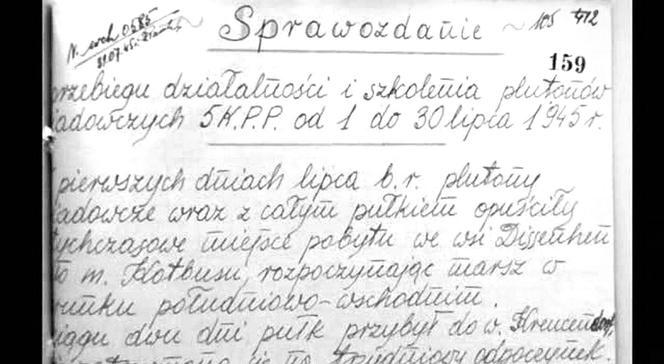 N. wch 0585
31.07.45r.
Sprawozdanie
105 412
159
przebiegu działalności i szkolenia plutonów
iadowczych 5K.P.P. od 1 do 30 lipca 1945 r.
pierwszych dniach lipca b.r. plutony
iadowcze wraz z całym pułkiem opuściły
tychczasowe miejsce pobytu we wsi Dissenhen
ło m. Kotbusu, rozpoczynając marsz w
runku południowo-wschodnim.
iągu dwu dni pułk przybył do w.
na trzydniowy odpoczynek